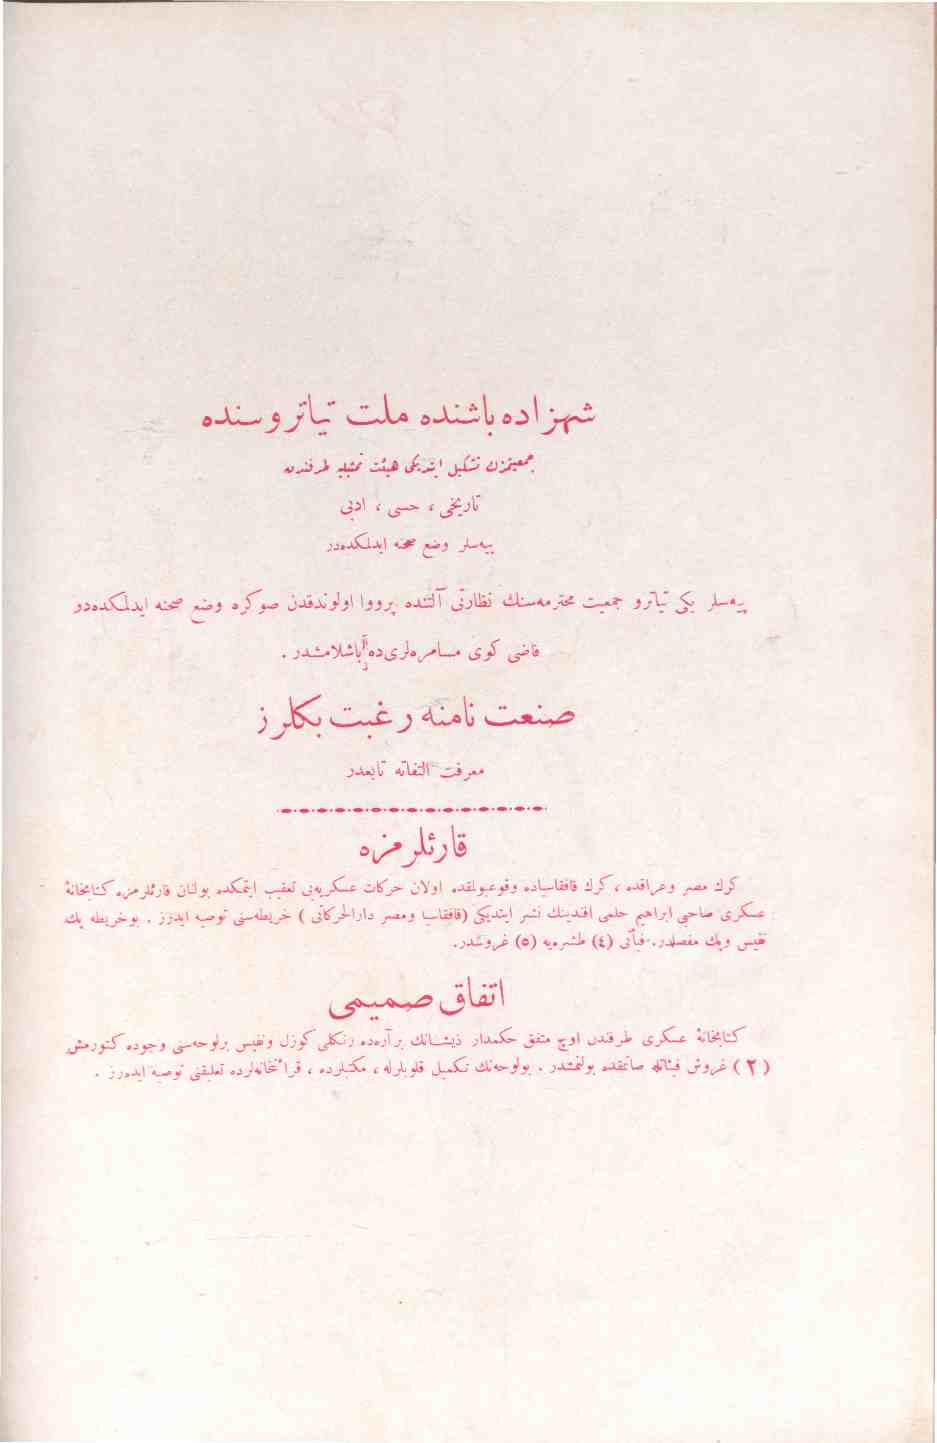 شهزاده باشنده ملت تياتروسنده
جمعيتمزك تشكيل ايتديكى هيئت تمثيليه طرفندن
تاريخى ، حسى ، ادبى
پيه‌سلر وضع صحنه ايدلمكده‌در
پيه‌سلر يكى تياترو جمعيت محترمه‌سنك نظارتى آلتنده پرووا اولوندقدن صوكره وضع صحنه ايدلمكده‌در
قاضى كوى مسامره‌لرى‌ده باشلامشدر .
صنعت نامنه رغبت بكلرز
معرفت التفاته تابعدر
قارئلرمزه
كرك مصر وعراقده ، كرك قافقاسياده وقوعبولقده اولان حركات عسكريه‌يى تعقيب ايتمكده بولنان قارئلرمزه كتابخانهٔ
عسكرى صاحبى ابراهيم حلمى افندينك نشر ايتديكى (قافقاسيا ومصر دارالحركاتى ) خريطه‌سنى توصيه ايدرز . بوخريطه پك
نفيس وپك مفصلدر. فيأتى (٤) طشره‌يه (٥) غروشدر.
اتفاق صميمى
كتابخانهٔ عسكرى طرفندن اوچ متفق حكمدار ذيشانك برآره‌ده رنكلى كوزل ونفيس برلوحه‌سنى وجوده كتورمش
(٢) غروش فيئاتله صاتمقده بولنمشدر . بولوحه‌نك تكميل قلوبلرله ، مكتبلرده ، قرائتخانه‌لرده تعليقنى توصيه ايده‌رز .